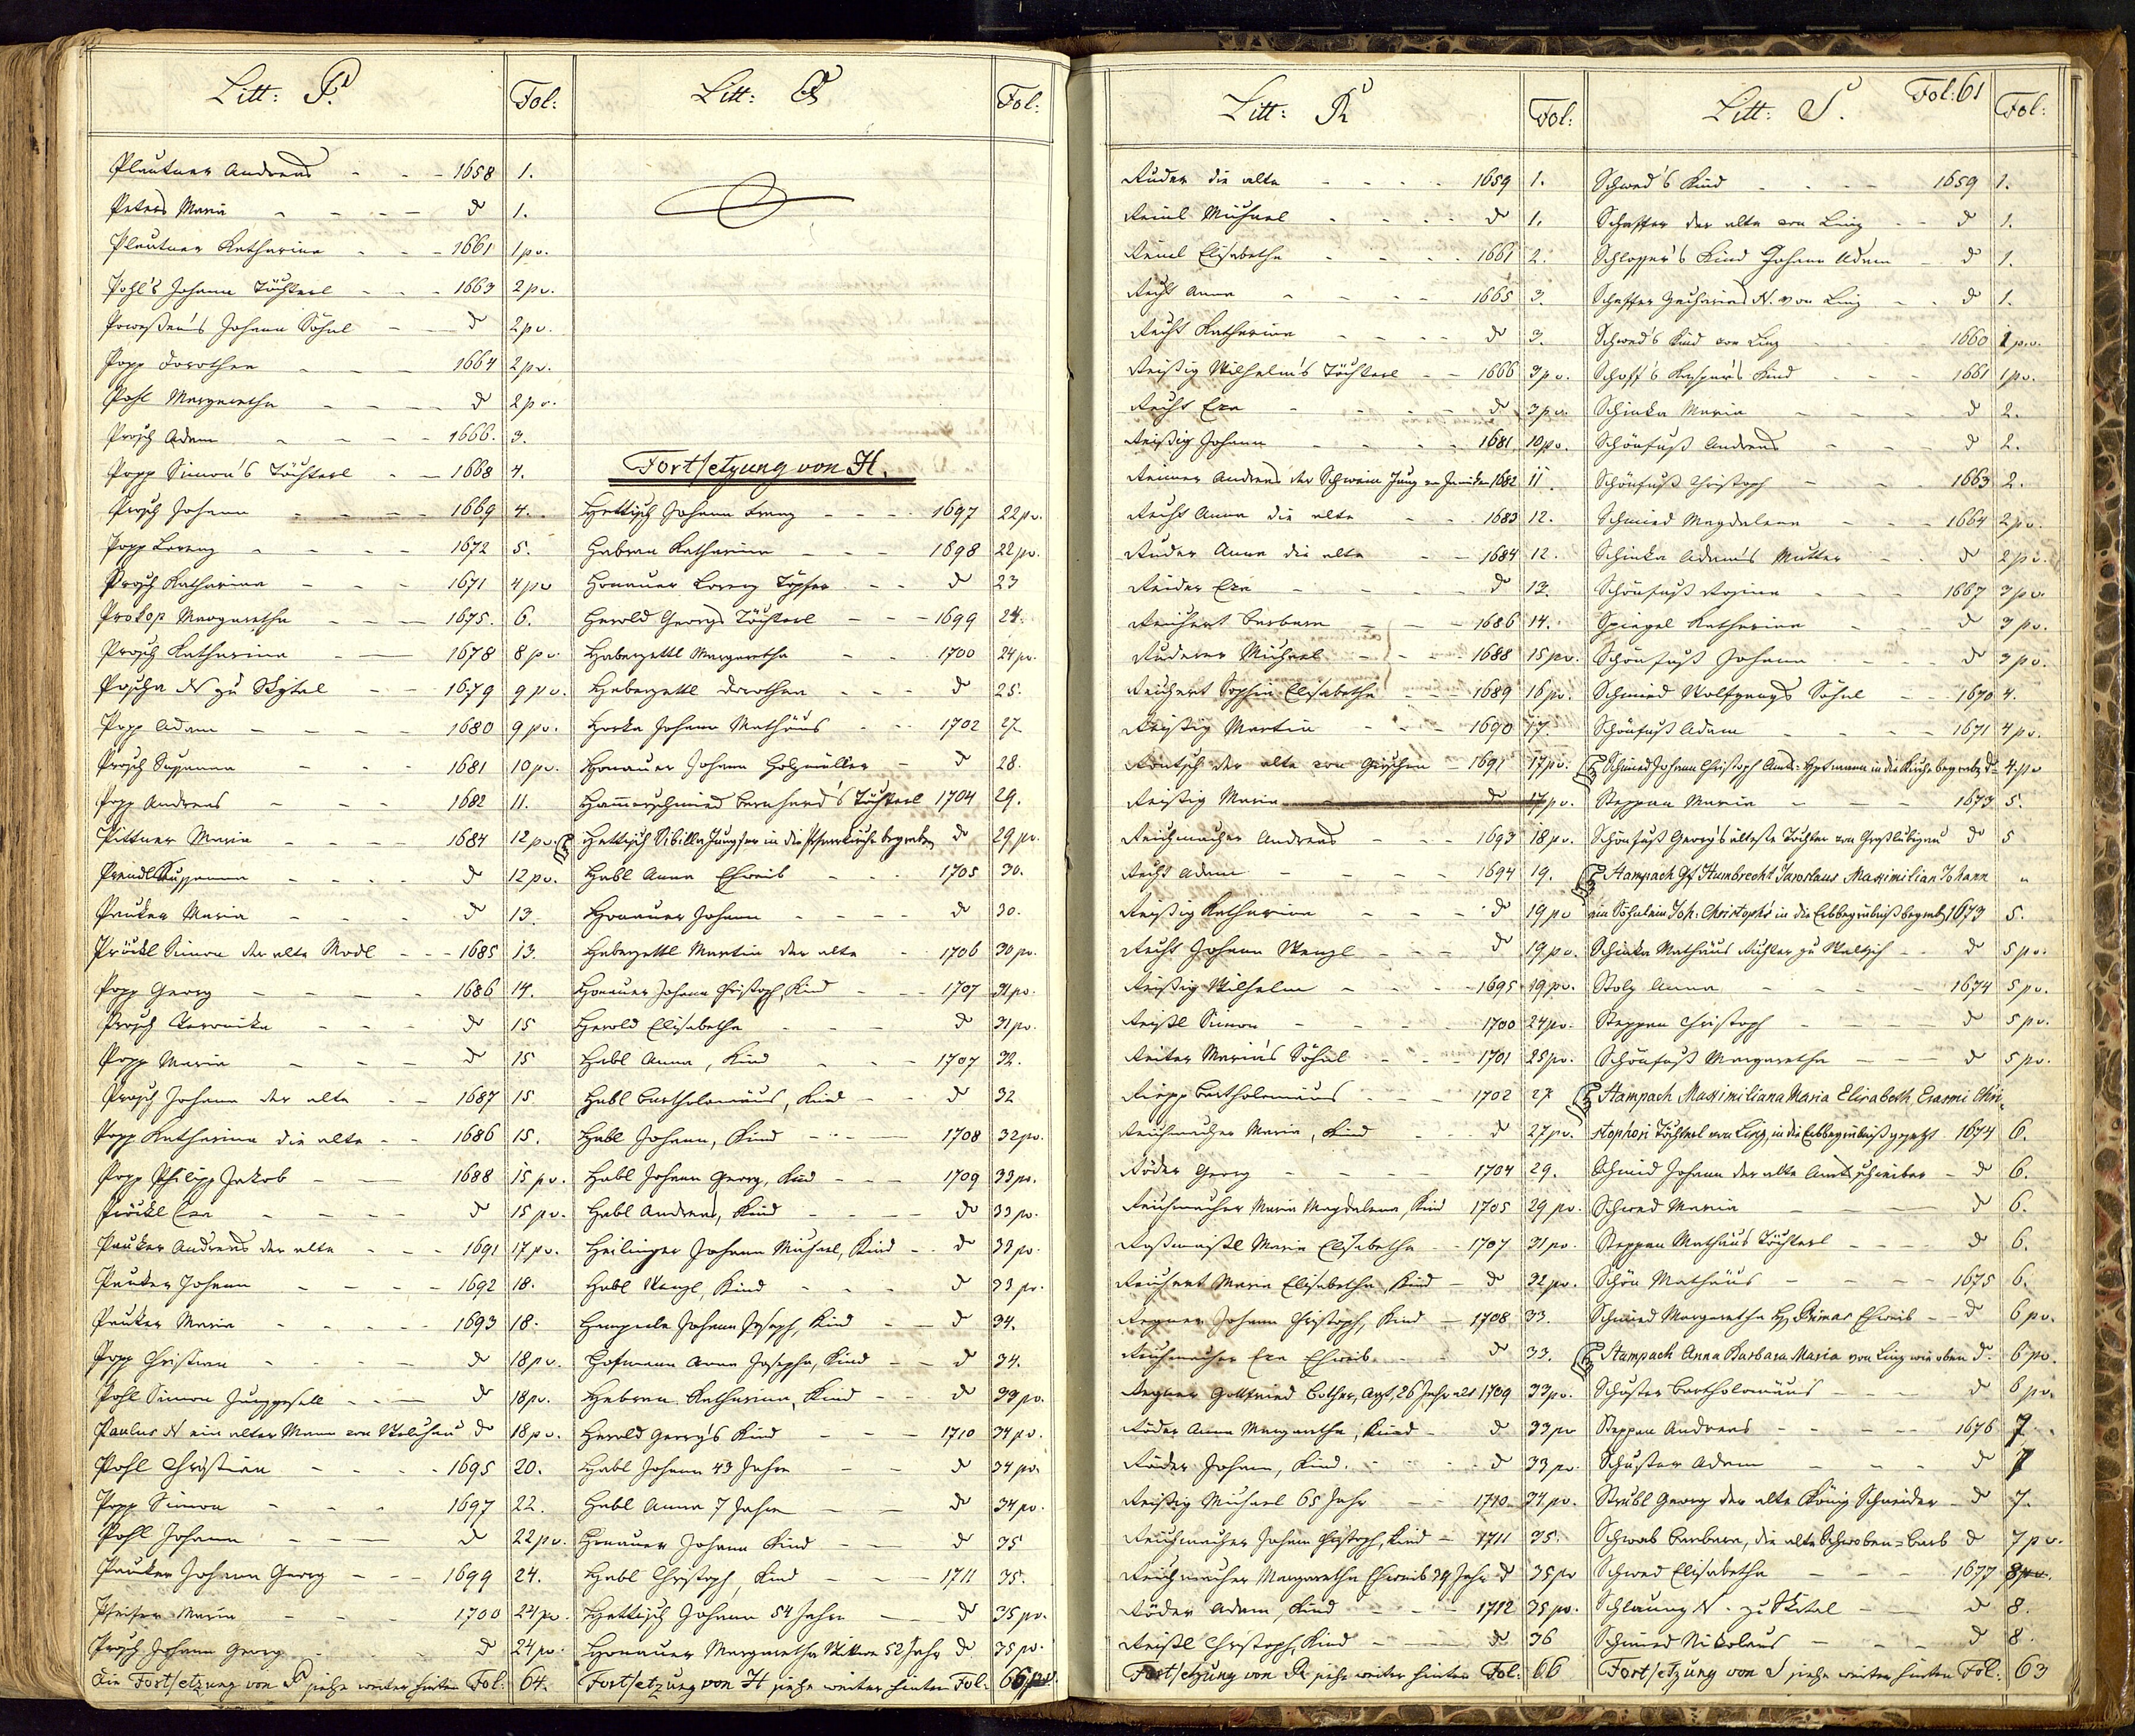 Litt: P. Fol:
Plautner Andreas - - - 1658 1.
Peters Maria - - - - d 1.
Plautner Katharina - - - 1661 1pv.
Pohl's Johann Töchterl - - - 1663 2pv.
Johann Söhnl - - d 2pv.
Popp Dorothea - - - 1664 2pv.
Pohl Margaretha - - - - d 2pv.
Prosch Adam - - - - 1666. 3.
Popp Simon's Töchterl - - 1668 4.
Prosch Johann - - - - 1669 4.
Popp Lorenz - - - - 1672 5.
Prosch Katharina - - - 1671 4pv
Prokop Margaretha - - - 1675. 6.
Prosch Katharina - - 1678 8pv.
Poscha N zu Skytal - - 1679 9pv.
Popp Adam - - - - 1680 9pv.
Prosch Susanna - - - 1681 10pv.
Popp Andreas - - - - 1682 11.
Pittner Maria - - - - 1684 12pv.
Preindl Susanna - - - - d 12pv.
Pauker Maria - - - d 13.
Pröckl Simon der alte - - - 1685 13.
Popp Georg - - - - 1686 14.
Prosch Veronika - - - d 15
Popp Maria - - - d 15
Prosch Johann der alte - - 1687 15
Popp Katharina die alte - - 1686 15.
Popp Philipp Jakob - - 1688 15pv.
Pröckl Eva - - - - d 15pv.
Pauker Andreas der alte - - 1691 17pv.
Pauker Johann - - - - 1692 18.
Pauker Maria - - - - 1693 18.
Popp Christian - - - - d 18pv.
Pohl Simon Junggesell - - - d 18pv.
Paulus N ein alter Mann von d 18pv.
Pohl Christian - - - - 1695 20.
Popp Simon - - - - 1697 22.
Pohl Johann - - - d 22pv.
Pauker Johann Georg - - - 1699 24.
Pfeifer Maria - - - 1700 24pv.
Prosch Johann Georg d 24pv.
Die Fortsetzung von P siehe weiter hinten Fol: 64.
Litt: Q Fol:
Fortsetzung von H.
Hettisch Johann Franz - - - - 1697 22pv.
Habran Katharina - - - 1698 22pv.
Honauer Lorenz Töpfer - - d 23
Herold Georgs Töchterl - - - 1699 24.
Haberzettl Margaretha - - 1700 24pv.
Haberzettl Dorothea - - - d 25.
Horka Johann Mathäus - - 1702 27
Honauer Johann Holzmüller - d 28.
Hammerschmied Bernhard's Töchterl 1704 29.
Hettisch Sibilla Jungfer in die Pfarrkirche begraben d 29pv.
Habl Anna Eheweib - - - 1705 30.
Honauer Johann - - - - d 30.
Haberzettl Martin der alte - 1706 30pv.
Honauer Johann Christoph, Kind - - 1707 31pv.
Herold Elisabetha - - - d 31pv.
Habl Anna, Kind - - 1707 32.
Habl Bartholomäus, Kind - - d 32
Habl Johann, Kind - - - 1708 32pv.
Habl Johann Georg, Kind - - - 1709 33pv.
Habl Andreas, Kind - - - d 33pv.
Heilinger Johann Michael, Kind - - d 33pv.
Habl Wenzl, Kind - - - d 33pv.
Johann Joseph, Kind - - d 34.
Hofmann Anna Josepha, Kind - - d 34.
Habran Katharina, Kind - - d 33pv.
Herold Georg's Kind - - - 1710 34pv.
Habl Johann 43 Jahre - d 34pv.
Habl Anna 7 Jahre - - d 34pv.
Honauer Johann Kind - - d 35
Habl Christoph, Kind - - - 1711 35.
Hettisch Johann 54 Jahre - d 35pv.
Honauer Margaretha Wittwe 52 Jahr d 35pv.
Fortsetzung von H siehe weiter hinten Fol: 66
Litt: R Fol:
Ruder die alte - - - - 1659 1.
Reinl Michael - - - - d 1.
Reinl Elisabetha - - - - 1661 2.
Recht Anna - - - - 1665 3.
Recht Katharina - - - - d 3.
Reißig Wilhelm's Töchterl - - 1666 3pv.
Recht Eva - - - - d 3pv.
Reißig Johann - - - - 1681 10pv.
Reimer Andreas der Schwein Jung 1682 11.
Recht Anna die alte - - 1683 12.
Ruder Anna die alte - - 1684 12.
Reider Eva - - - - d 13.
Reichert Barbara - - - 1686 14.
Ruderer Michael - - - 1688 15pv.
Reichert Sophia Elisabetha - - - 1689 16pv.
Reißig Martin - - 1690 17.
der alte von 1691 17pv.
Reißig Maria d 17pv.
Reichmacher Andreas - - - 1693 18pv.
Recht Adam - - - - 1694 19.
Reißig Katharina - - - d 19pv
Recht Johann Wenzl - - - d 19pv.
Reißig Wilhelm - - - - 1695 19pv.
Reißl Simon - - - - 1700 24pv.
Reiter Maria's Söhnl - - - 1701 25pv.
Riepp Bartholomäus - - - 1702 27
Reichmacher Maria, Kind - - d 27pv.
Röder Georg - - - - 1704 29.
Reichmacher Maria Magdalena, Kind 1705 29pv.
Maria Elisabetha - - 1707 31pv.
Reichert Maria Elisabetha, Kind - d 32pv.
Regner Johann Christoph, Kind - 1708 33.
Reichmacher Eva Eheweib - - d 33.
Regner Gottfried 26 Jahr alt 1709 33pv.
Röder Anna Margaretha, Kind - d 33pv
Röder Johann, Kind. - - - d 33pv.
Reißig Michael 65 Jahr - - 1710 34pv.
Reichmacher Johann Christoph, Kind - 1711 35.
Reichmacher Margaretha Eheweib 34 Jahr d 35pv
Röder Adam, Kind - - - 1712 35pv.
Reißl Christoph, Kind - - d 36
Fortsetzung von R siehe weiter hinten Fol: 66
Litt: S. Fol: 61 Fol:
Schwed's Kind - - - - 1659 1.
Schaffer der alte von Linz - - d 1.
Schlosser's Kind Johann Adam - d 1.
Schaffer Zacharias N. von Linz - - d 1.
Schwed's Kind von Linz - - - 1660 1pv.
Schaff's Kaspar's Kind - - - 1661 1pv.
Schinka Maria - - - - d 2.
Schönfuß Andreas - - - d 2.
Schönfuß Christoph - - - 1663 2.
Schmied Magdalena - - - 1664 2pv.
Schinka Adam's Mutter - - d 2pv.
Schönfuß Rosina - - - 1667 3pv.
Spiegel Katharina - - d 3pv.
Schönfuß Johann - - - d 3pv.
Schmied Wolfgang's Söhnl - - 1670 4.
Schönfuß Adam - - - - 1671 4pv.
Schmied Johann Christoph Amts-Hptmann in die Kirche begraben d 4pv
Steppan Maria - - - 1673 5.
Schönfuß Georg's älteste Tochter von d 5
Stampach Gf Humbrecht Jaroslaus Maximilian Johann "
ein Söhnlein Joh: Christoph's in die Erbbegräbniß begrab. 1673 5.
Schinka Mathäus Richter zu - - d 5pv.
Stolz Anna - - - - 1674 5pv.
Steppan Christoph - - - d 5pv.
Schönfuß Margaretha - - - d 5pv.
Stampach Maximiliana Maria Elisabeth Erasmi Chri-
stophori Töchterl von Linz, in die Erbbegräbniß gesetzt 1674 6.
Schmid Johann der alte Amtsschreiber - d 6.
Schwed Maria - - - d 6.
Steppan Mathäus Töchterl - - - d 6.
Schön Mathäus - - - - 1675 6.
Schmied Margaretha Eheweib - - d 6pv.
Stampach Anna Barbara Maria von Linz wie oben d. 6pv.
Schuster Bartholomäus - - - d 6pv.
Steppan Andreas - - - - 1676 7
Schuster Adam - - - d 7
Strubl Georg der alte König Schneider - d 7.
Schwab Barbara, die alte Schwoben-Barb d 7pv.
Schwed Elisabetha - - - 1677 8pv.
Schlaung N. zu Skytal - - d 8.
Schmied Nikolaus - - - d 8.
Fortsetzung von S siehe weiter hinten Fol: 63